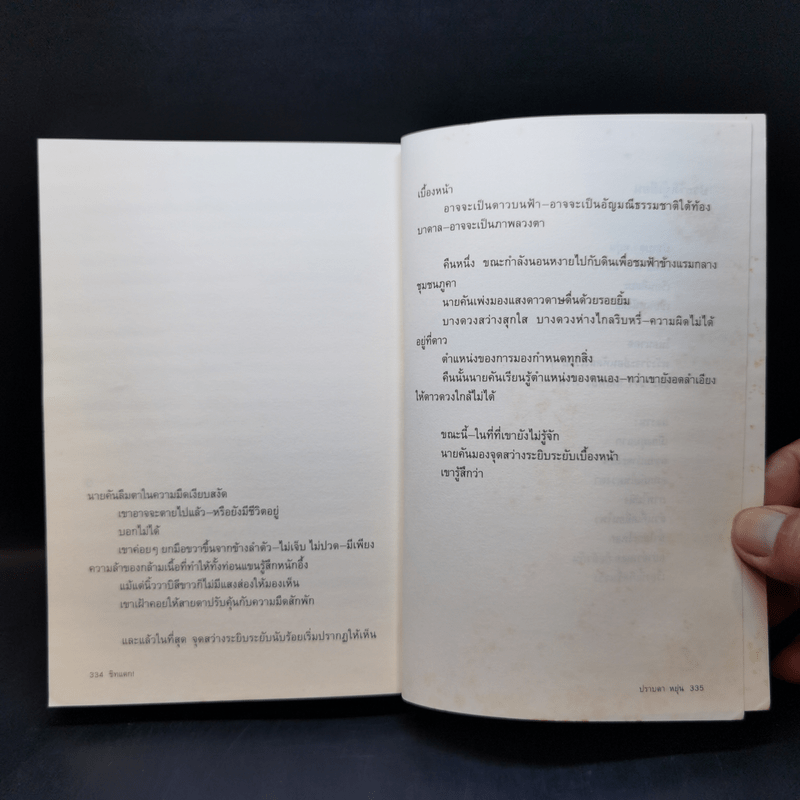 นายคันลืมตาในความมืดเงียบสงัด
เขาอาจจะตายไปแล้ว–หรือยังมีชีวิตอยู่
บอกไม่ได้
เขาค่อยๆ ยกมือขวาขึ้นจากข้างลำตัว–ไม่เจ็บ ไม่ปวด–มีเพียง
ความล้าของกล้ามเนื้อที่ทำให้ทั้งท่อนแขนรู้สึกหนักอึ้ง
แม้แต่นิ้ววาปีสีขาวก็ไม่มีแสงส่องให้มองเห็น
เขาเฝ้าคอยให้สายตาปรับคุ้นกับความมืดสักพัก
และแล้วในที่สุด จุดสว่างระยิบระยับนับร้อยเริ่มปรากฏให้เห็น
334 ชิทแตก!
เบื้องหน้า
อาจจะเป็นดาวบนฟ้า–อาจจะเป็นอัญมณีธรรมชาติใต้ท้อง
บาดาล–อาจจะเป็นภาพลวงตา
คืนหนึ่ง ขณะกำลังนอนหงายไปกับดินเพื่อชมฟ้าข้างแรมกลาง
ชุมชนภูคา
นายคันเพ่งมองแสงดาวดาษดื่นด้วยรอยยิ้ม
บางดวงสว่างสุกใส บางดวงห่างไกลริบหรี่–ความผิดไม่ได้
อยู่ที่ดาว
ตำแหน่งของการมองกำหนดทุกสิ่ง
คืนนั้นนายคันเรียนรู้ตำแหน่งของตนเอง–ทว่าเขายังอดลำเอียง
ให้ดาวดวงใกล้ไม่ได้
ขณะนี้–ในที่ที่เขายังไม่รู้จัก
นายคันมองจุดสว่างระยิบระยับเบื้องหน้า
เขารู้สึกว่า
ปราบดา หยุ่น 335